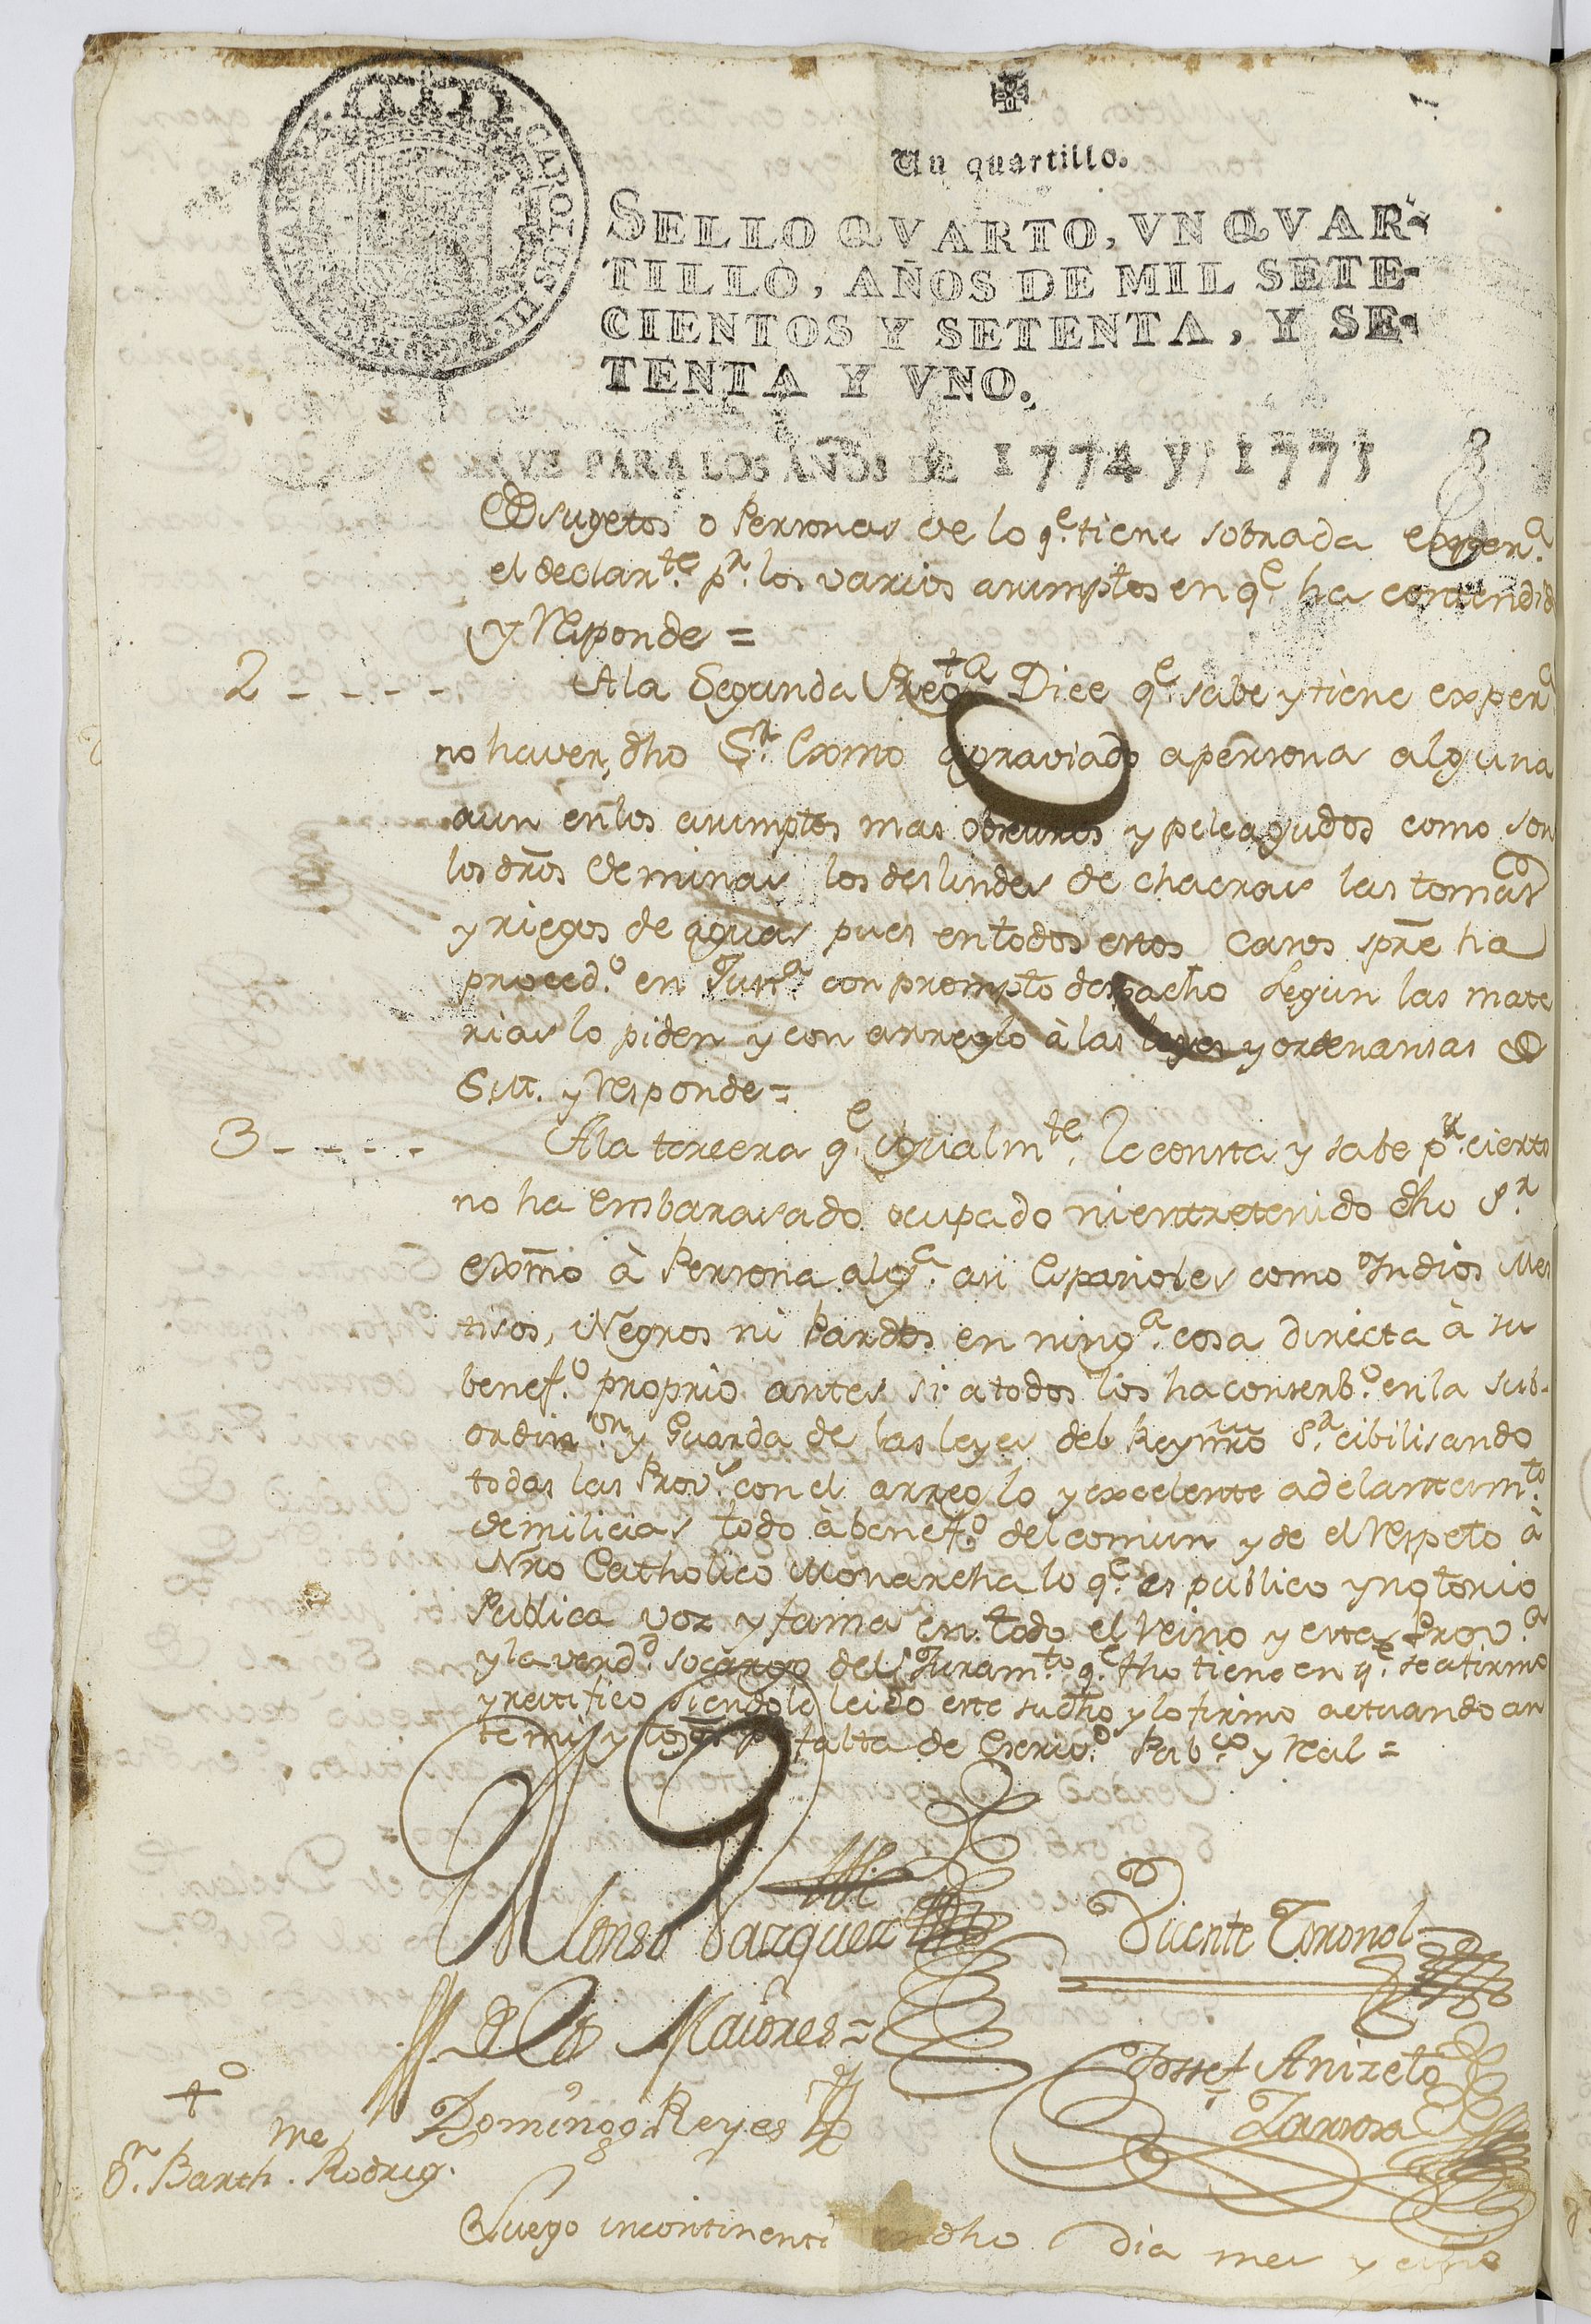 CAROLUS III
Un quartillo.
SELLO QVARTO, VN QVAR-
TILLO, AÑOS DE MIL SETE-
CIENTOS Y SETENTA, Y SE-
TENTA Y VNO.
PARA LOS AÑOS DE 1774 y, 1775
sugetos o Personas de lo q.e tiene sobrada exper.a
el declar.te p.r los varios asumptos en q.e ha contendido
y Responde =
2 - - - - A la Segunda Preg.ta Dice q.e sabe y tiene exper.a
no haver dho S.r Exmo agraviado a persona alguna
aun en los asumptos mas obscuros y peleagudos como son
los dros de minas los deslindes de chacras las tomas
y riegos de aguas pues en todos estos casos spre ha
proced.o en Just.a con prompto despacho segun las mate
rias lo piden y con arreglo à las leyes y ordenansas de
S.M. y Responde =
3 - - - - - A la tercera q.e igualm.te le consta y sabe p.r cierto
no ha embarasado ocupado ni entretenido dho S.r
Exmo à Persona alg.a asi Españoles como Indios Mes
tisos, Negros ni Pardos en ning.a cosa directa à su
benef.o proprio antes si a todos los ha conserb.o en la sub-
ordin.on y Guarda de las leyes del Rey nro S.r cibilisando
todas las Prov.s con el arreglo y excelente adelantam.to
de milicias todo à benef.o del comun y de el Respeto à
Nro Catholico Monarcha lo q.e es publico y notorio
Publica voz y fama en todo el Reino y esta Prov.a
y la verd.d so cargo del Juram.to q.e fho tiene en q.e se afirmo
y ratifico siendole leido este su dho y lo firmo actuando an
te mi y tgos p.r falta de Escriv.o Pub.co y Real =
Alonso Vazquez
Vicente Coronel
de los Maiores =
Jossef Aniceto
Zarrosa
Domingo Reyes
t.o
D.n Barth.me Rodrig.
Luego incontinenti en dho dia mes y año